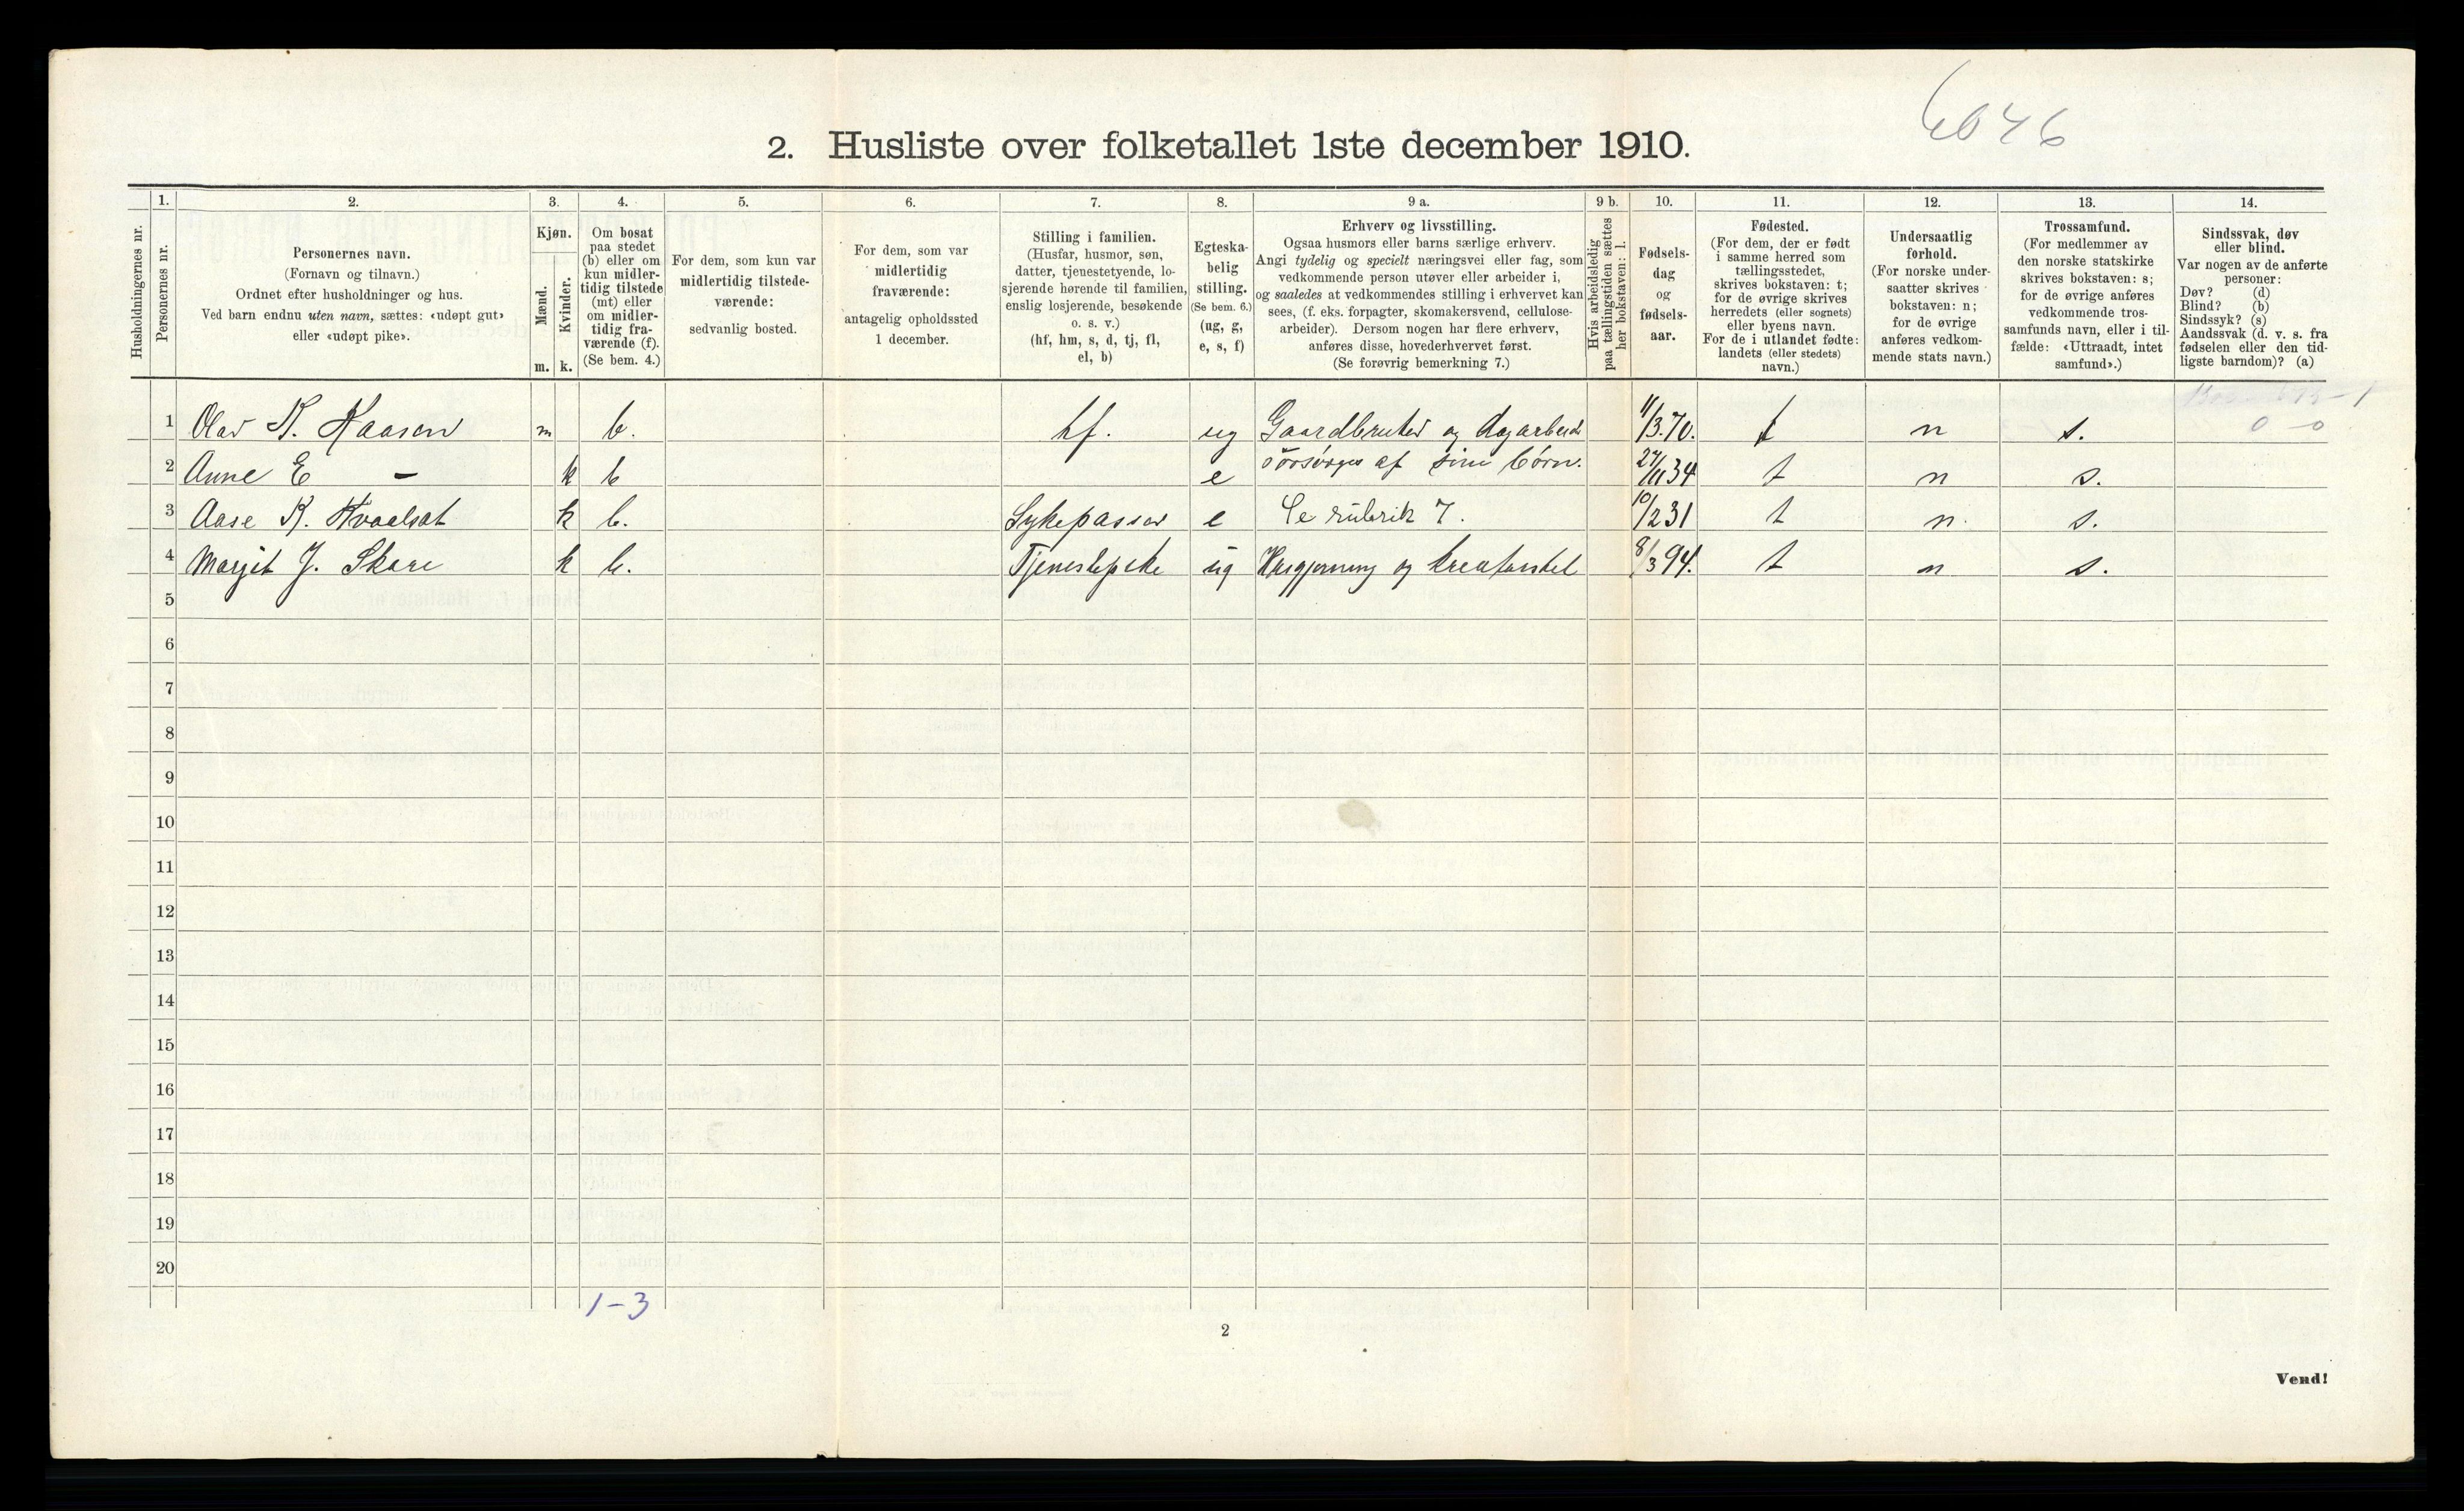 6046
2. Husliste over folketallet 1ste december 1910.
Husholdningernes nr.
1. Personernes nr.
2. Personernes navn. (Fornavn og tilnavn.) Ordnet efter husholdninger og hus. Ved barn endnu uten navn, sættes: «udøpt gut» eller «udøpt pike».
3. Kjøn. Mænd. m. Kvinder. k.
4. Om bosat paa stedet (b) eller om kun midlertidig tilstede (mt) eller om midlertidig fraværende (f). (Se bem. 4.)
5. For dem, som kun var midlertidig tilstedeværende: sedvanlig bosted.
6. For dem, som var midlertidig fraværende: antagelig opholdssted 1 december.
7. Stilling i familien. (Husfar, husmor, søn, datter, tjenestetyende, losjerende hørende til familien, enslig losjerende, besøkende o. s. v.) (hf, hm, s, d, tj, fl, el, b)
8. Egteskabelig stilling. (Se bem. 6.) (ug, g, e, s, f)
9 a. Erhverv og livsstilling. Ogsaa husmors eller barns særlige erhverv. Angi tydelig og specielt næringsvei eller fag, som vedkommende person utøver eller arbeider i, og saaledes at vedkommendes stilling i erhvervet kan sees, (f. eks. forpagter, skomakersvend, cellulosearbeider). Dersom nogen har flere erhverv, anføres disse, hovederhvervet først. (Se forøvrig bemerkning 7.)
9 b. Hvis arbeidsledig paa tællingstiden sættes her bokstaven: l.
10. Fødselsdag og fødselsaar.
11. Fødested. (For dem, der er født i samme herred som tællingsstedet, skrives bokstaven: t; for de øvrige skrives herredets (eller sognets) eller byens navn. For de i utlandet fødte: landets (eller stedets) navn.)
12. Undersaatlig forhold. (For norske undersaatter skrives bokstaven: n; for de øvrige anføres vedkommende stats navn.)
13. Trossamfund. (For medlemmer av den norske statskirke skrives bokstaven: s; for de øvrige anføres vedkommende trossamfunds navn, eller i tilfælde: «Uttraadt, intet samfund».)
14. Sindssvak, døv eller blind. Var nogen av de anførte personer: Døv? (d) Blind? (b) Sindssyk? (s) Aandssvak (d. v. s. fra fødselen eller den tidligste barndom)? (a)
0 - 0
1 Olav K. Haasen m b. hf. ug Gaardbruker og dagarbeid 11/3.70. t n s.
2 Anne E — k b e forsørges af sine børn. 27/11 34 t n s.
3 Aase K. Kvaalsat k b. Sykepasser e Se rubrik 7. 10/2 31 t n. s.
4 Margit J. Skare k b. Tjenestepike ug Husgjerning og kreaturstel 8/3 94. t n s.
5
6
7
8
9
10
11
12
13
14
15
16
17
18
19
20
1-3
2
Vend!